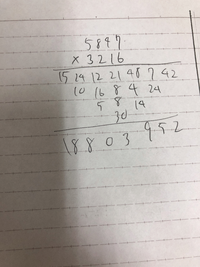 5847
× 3216
15 24 12 21 48 7 42
10 16 8 4 24
5 8 14
30
18803952